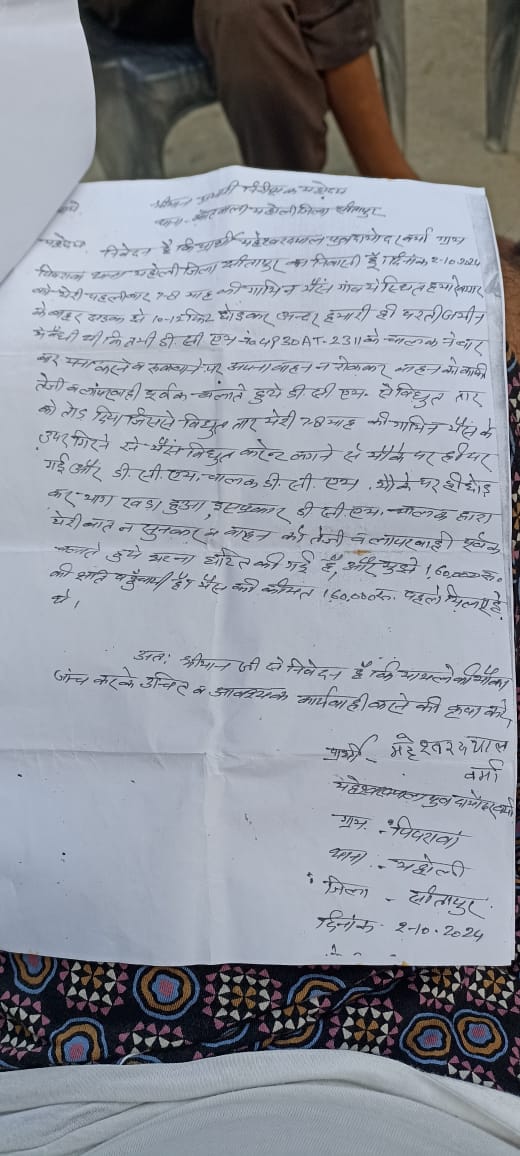 सेवा में, श्रीमान प्रभारी निरीक्षक महोदय
थाना - कोतवाली महोली जिला सीतापुर
महोदय, निवेदन है कि प्रार्थी महेश्वरदयाल पुत्र दामोदर वर्मा ग्राम
पिपरावां थाना महोली जिला सीतापुर का निवासी हूँ दिनांक 2-10-2024
को मेरी पहलीवार 7-8 माह की गाभिन भैंस गांव में स्थित हमारे
के बाहर सड़क से 10-12 फिट छोड़कर अन्दर हमारी ही परती जमीन
में बंधी थी कि तभी डी सी एम नं0 4930AT-2311 के चालक ने बार
बार मना करने व रुकवाने पर अपना वाहन न रोककर वाहन को काफी
तेजी व लापरवाही पूर्वक चलाते हुये डी सी एम. से विद्युत तार
को तोड़ दिया जिससे विद्युत तार मेरी 7-8 माह की गाभिन भैंस के
उपर गिरने से भैंस विद्युत करेन्ट लगने से मौके पर ही मर
गई और डी.सी.एम. चालक डी.सी.एम. मौके पर ही छोड़
कर भाग खडा हुआ, इसप्रकार डी सी एम. चालक द्वारा
मेरी बात न सुनकर व वाहन को तेजी व लापरवाही पूर्वक
चलाते हुये घटना घटित की गई है, और मुझे 1,60,000 रु.
की क्षति पहुँचायी है। भैंस की कीमत 1,60,000 रु. पहले मिल रहे
थे।
अतः श्रीमान जी से निवेदन है कि मामले की मौका
जांच करके उचित व आवश्यक कार्यवाही करने की कृपा करें,
प्रार्थी - महेश्वर दयाल
वर्मा
महेश्वरदयाल पुत्र दामोदर वर्मा
ग्राम - पिपरावां
थाना - महोली
जिला - सीतापुर
दिनांक - 2-10-2024